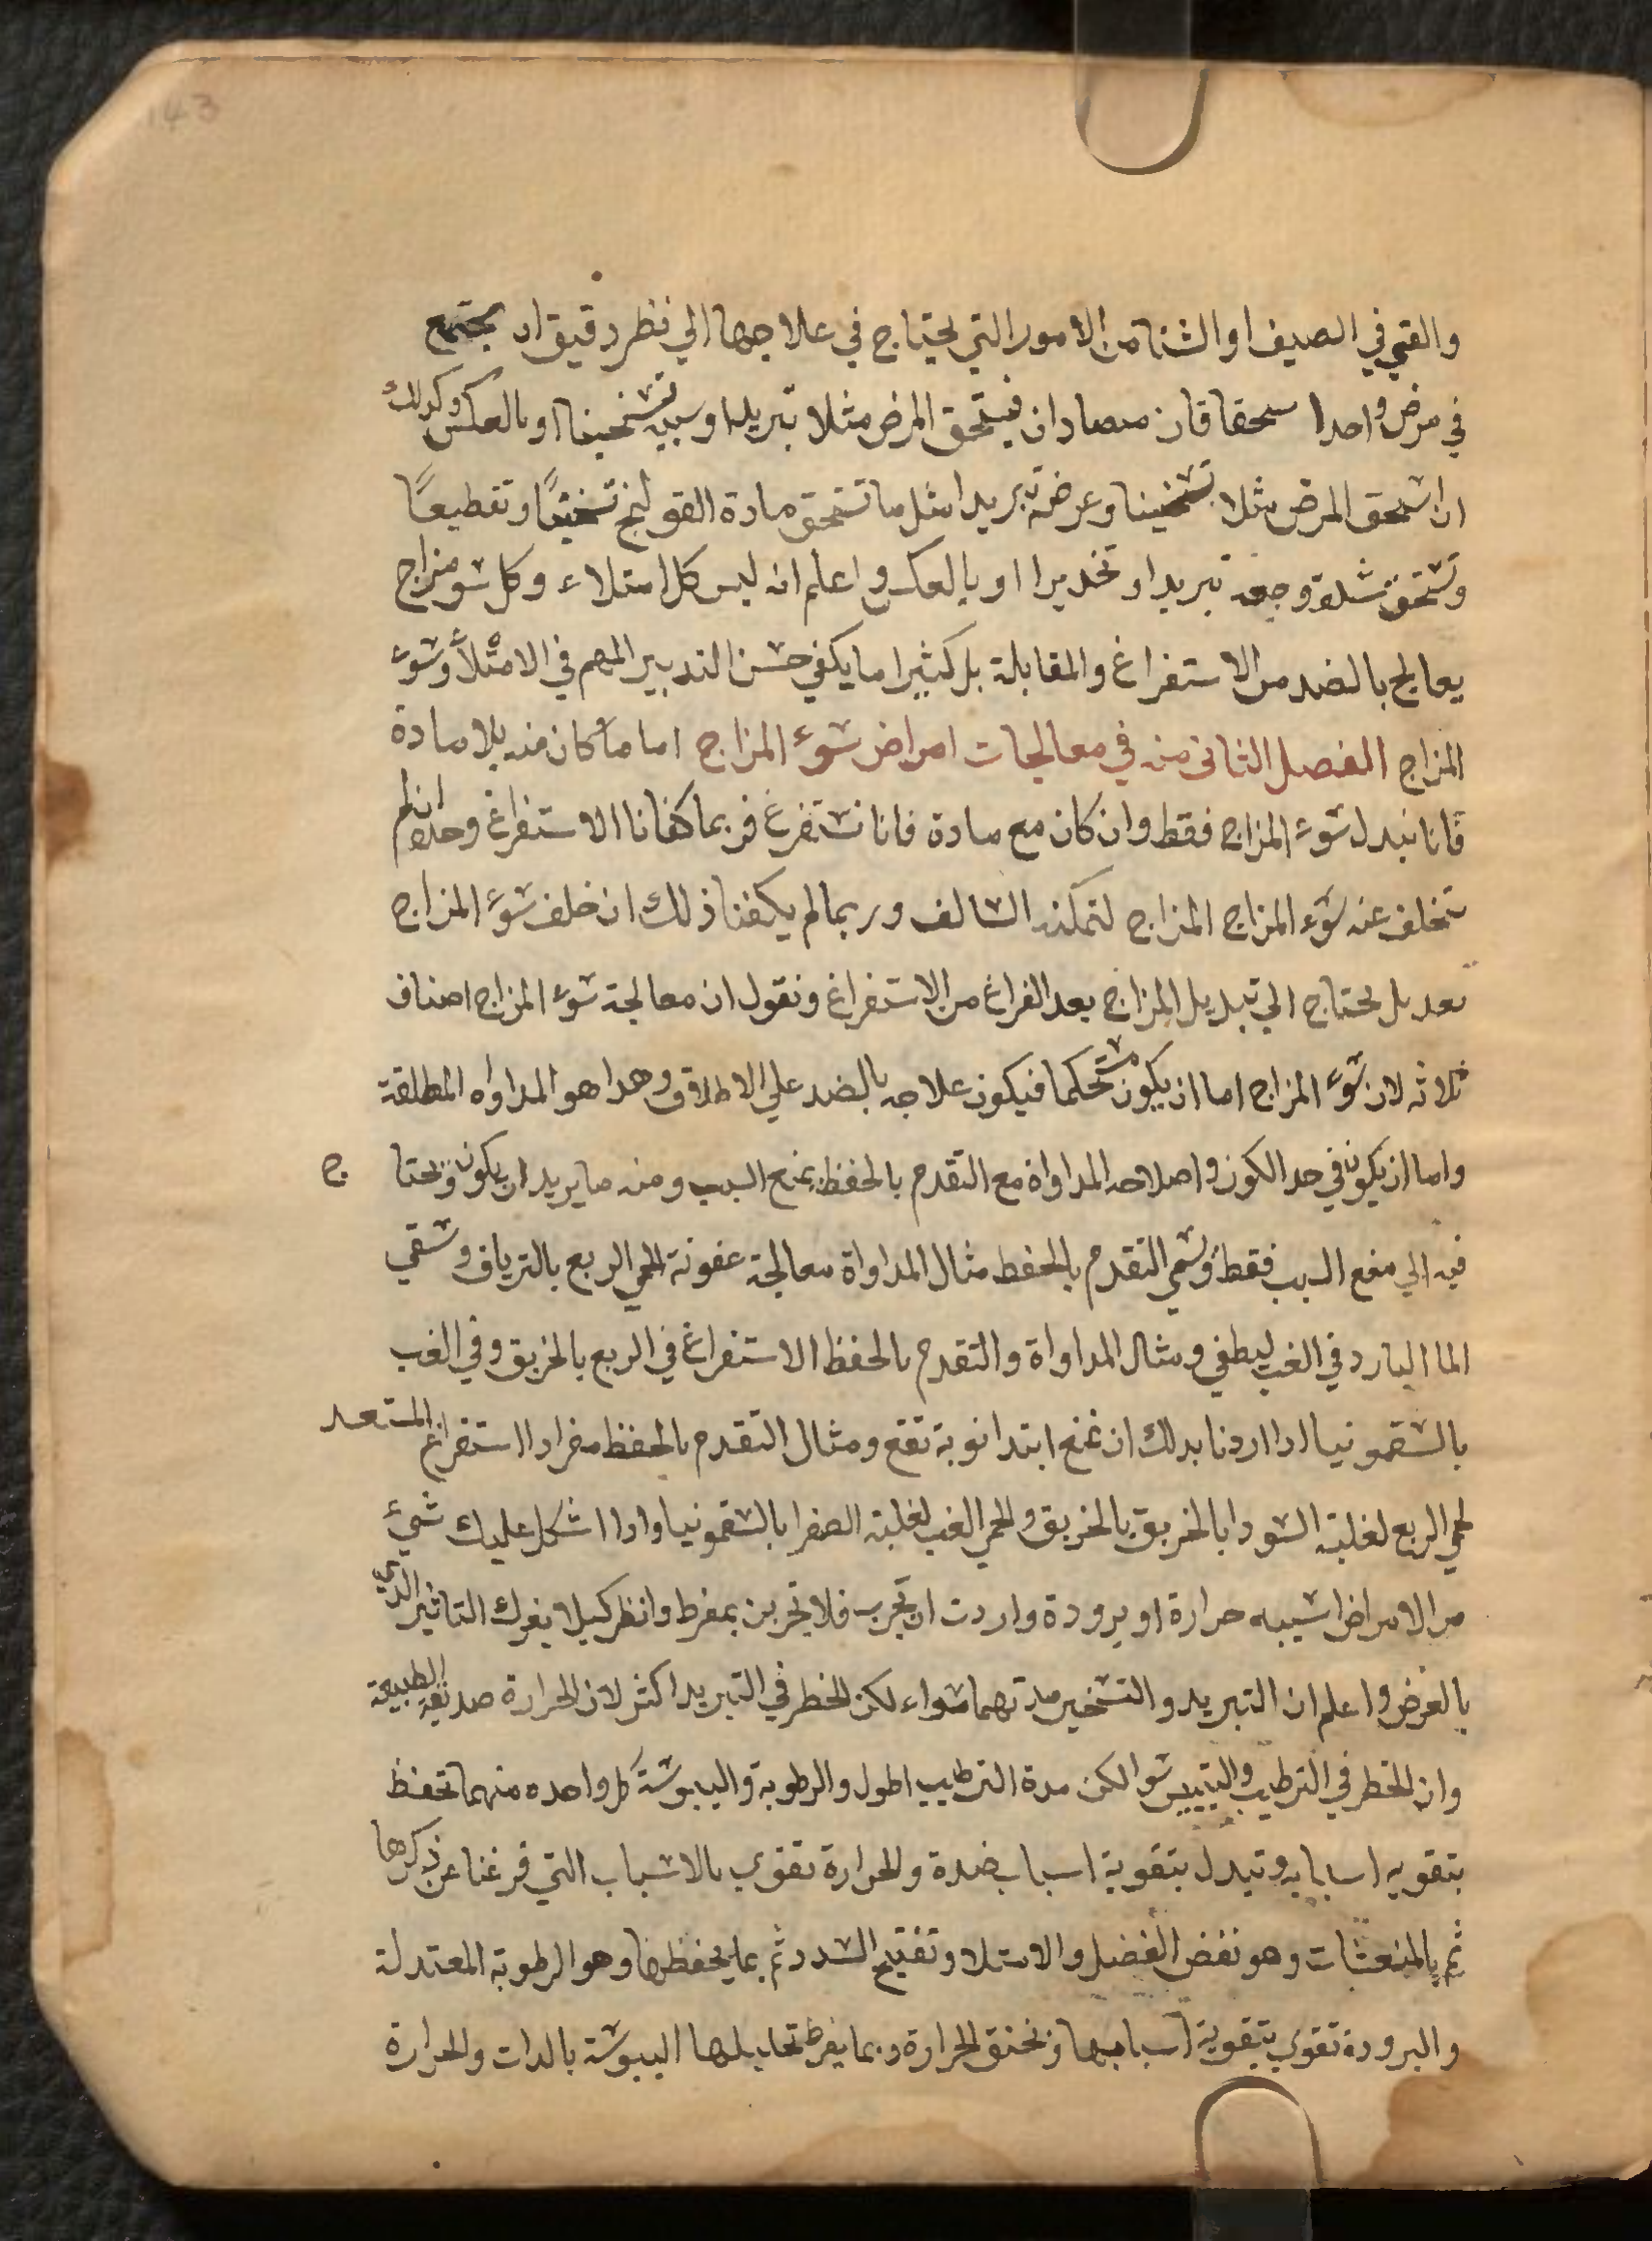 143
والقي في الصيف او الشتا من الامور التي يحتاج في علاجها الي نظر دقيق ان يجتمع
في مرض واحد استحقاقان متضادان فيستحق المرض مثلا تبريدا وسببه تسخينا او بالعكس وكذلك
ان استحق المرض مثلا تسخينا وعرضه تبريدا مثل ما تستحق مادة القولنج تسخينًا وتقطيعًا
وتستحق شدة وجعه تبريدا وتخديرا او بالعكس واعلم انه ليس كل امتلاء وكل سو مزاج
يعالج بالضد من الاستفراغ والمقابلة بل كثيرا ما يكفي حسن التدبير المهم في الامتلأ وسوء
المزاج الفصل الثاني منه في معالجات امراض سوء المزاج اما ما كان منه بلا مادة
فانا نبدل سوء المزاج فقط وان كان مع مادة فانا نستفرغ فربما كفانا الاستفراغ وحده ان لم
يتخلف عنه سوء المزاج المزاج لتمكنه السالف وربما لم يكفنا ذلك ان خلف سوء المزاج
بعد بل يحتاج الي تبديل المزاج بعد الفراغ من الاستفراغ ونقول ان معالجة سوء المزاج اصناف
ثلاثه لان سوء المزاج اما ان يكون مستحكما فيكون علاجه بالضد علي الاطلاق وهدا هو المداواه المطلقة
واما ان يكون في حد الكون واصلاحه المداواة مع التقدم بالحفظ بمنع السبب ومنه ما يريد ان يكون ويحتا ج
فيه الي منع السبب فقط ويسمي التقدم بالحفظ مثال المداواة معالجة عفونة الحمي الربع بالترياق وسقي
الما البارد في الغب ليطفي ومثال المداواة والتقدم بالحفظ الاستفراغ في الربع بالخربق وفي الغب
بالسقمونيا ادا اردنا بدلك ان نمنع ابتدا نوبة تقع ومثال التقدم بالحفظ مفردا استفراغ المستعد
لحمي الربع لغلبة السودا بالخربق بالخربق ولحمي الغب لغلبة الصفرا بالسقمونيا وادا اشكل عليك شيء
من الامراض اسببه حرارة او برودة واردت ان تجرب فلا تجربن بمفرط وانظر كيلا يغرك التاثير الدي
بالعرض واعلم ان التبريد والتسخين مدتهما سواء لكن الخطر في التبريد اكثر لان الحرارة صديقة الطبيعة
وان الخطر في الترطيب والتيبيس سوا لكن مدة الترطيب اطول والرطوبة واليبوسة كل واحده منهما تحفظ
بتقويه اسبابه وتبدل بتقوية اسباب ضدة والحرارة تقوي بالاسباب التي فرغنا عن ذكرها
ثم بالمنعشات وهو نفض الفضل والامتلا وتفتيح السدد ثم بما يحفظها وهو الرطوبة المعتدلة
والبرودة تقوي بتقوية اسبابها ونخنق الحرارة وبما يفرط تحليلها اليبوسة بالدات والحرارة